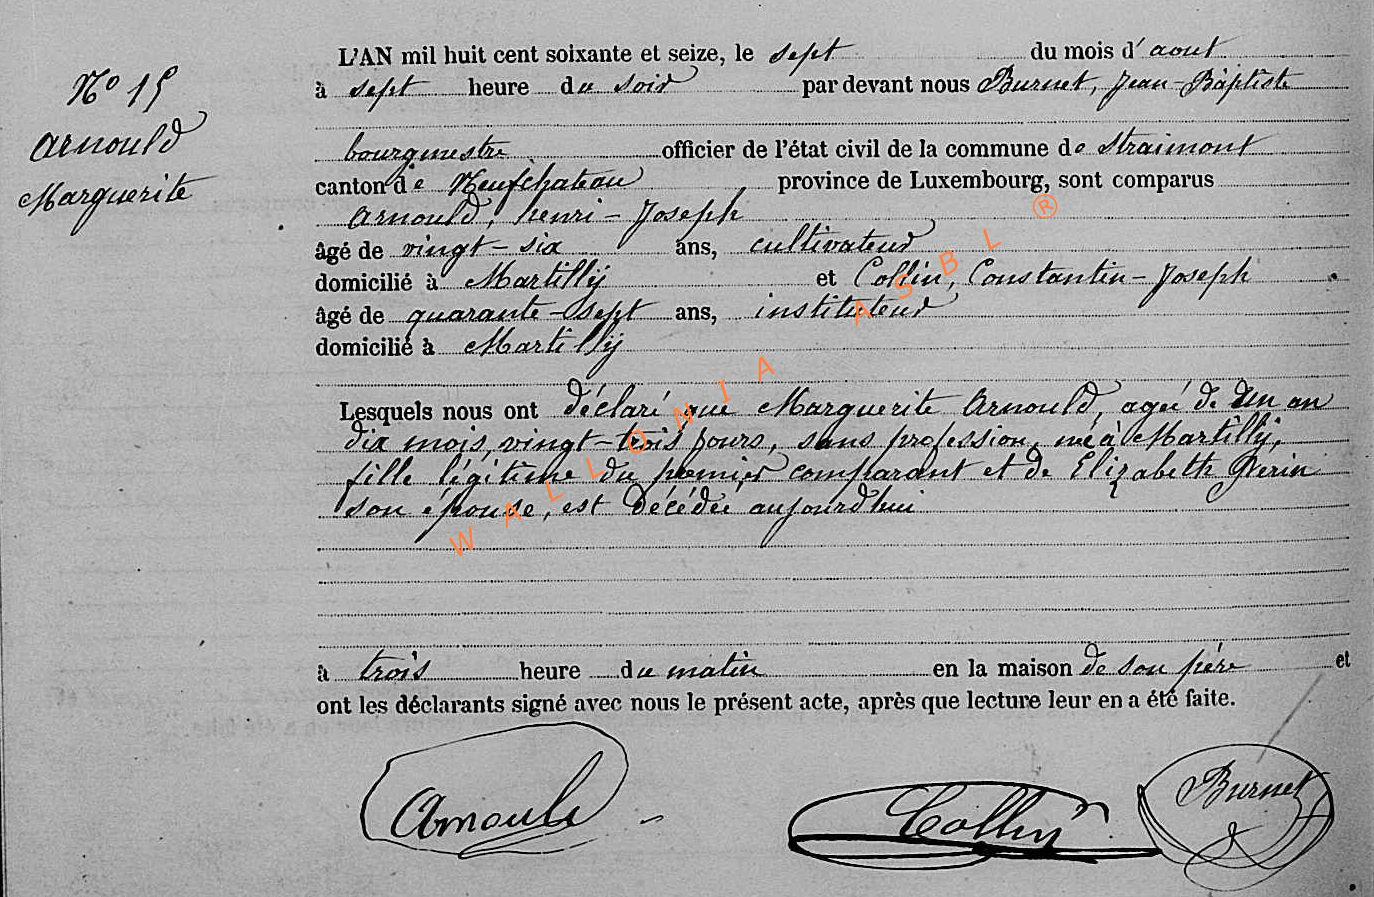 N° 15
Arnould
Marguerite
L'AN mil huit cent soixante et seize, le sept du mois d'aout
à sept heure du soir par devant nous Burnet, Jean-Baptiste
bourgmestre officier de l'état civil de la commune de Straimont
canton de Neufchateau province de Luxembourg, sont comparus
Arnould, henri-Joseph
âgé de vingt-six ans, cultivateur
domicilié à Martilly et Collin, Constantin-Joseph
âgé de quarante-sept ans, instituteur
domicilié à Martilly
Lesquels nous ont déclaré que Marguerite Arnould, ageé de un an
dix mois, vingt-trois jours, sans profession, né à Martilly,
fille légitime du premier comparant et de Elizabeth Gérin
son épouse, est décédée aujourd'hui
à trois heure du matin en la maison de son père et
ont les déclarants signé avec nous le présent acte, après que lecture leur en a été faite.
Arnould Collin Burnet
WALLONIA ASBL ®